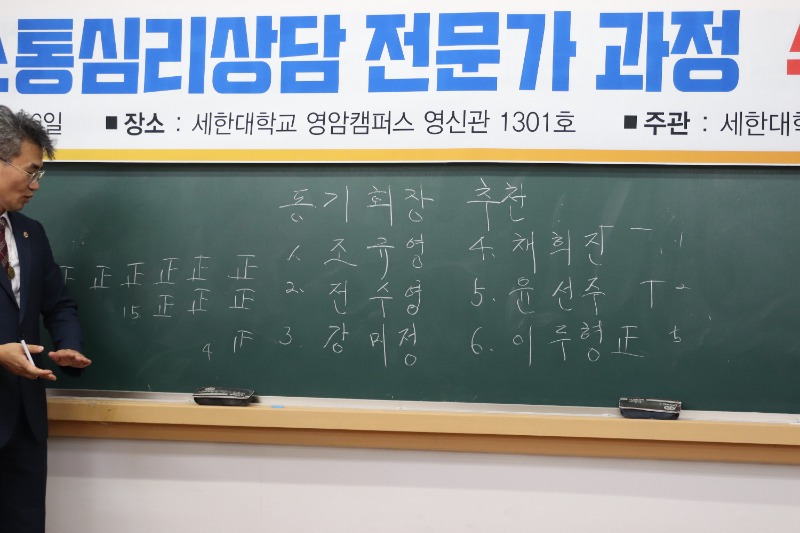 소통심리상담 전문가 과정
6일 ■ 장소 : 세한대학교 영암캠퍼스 영신관 1301호 ■ 주관 : 세한대학
동기회장 추천
正 正 正 正 正 正 1. 조규영 4. 채희진 一 1
15 正 正 正 2. 전수영 5. 윤선주 丅 2
4 正 3. 강미정 6. 이루형 正 5